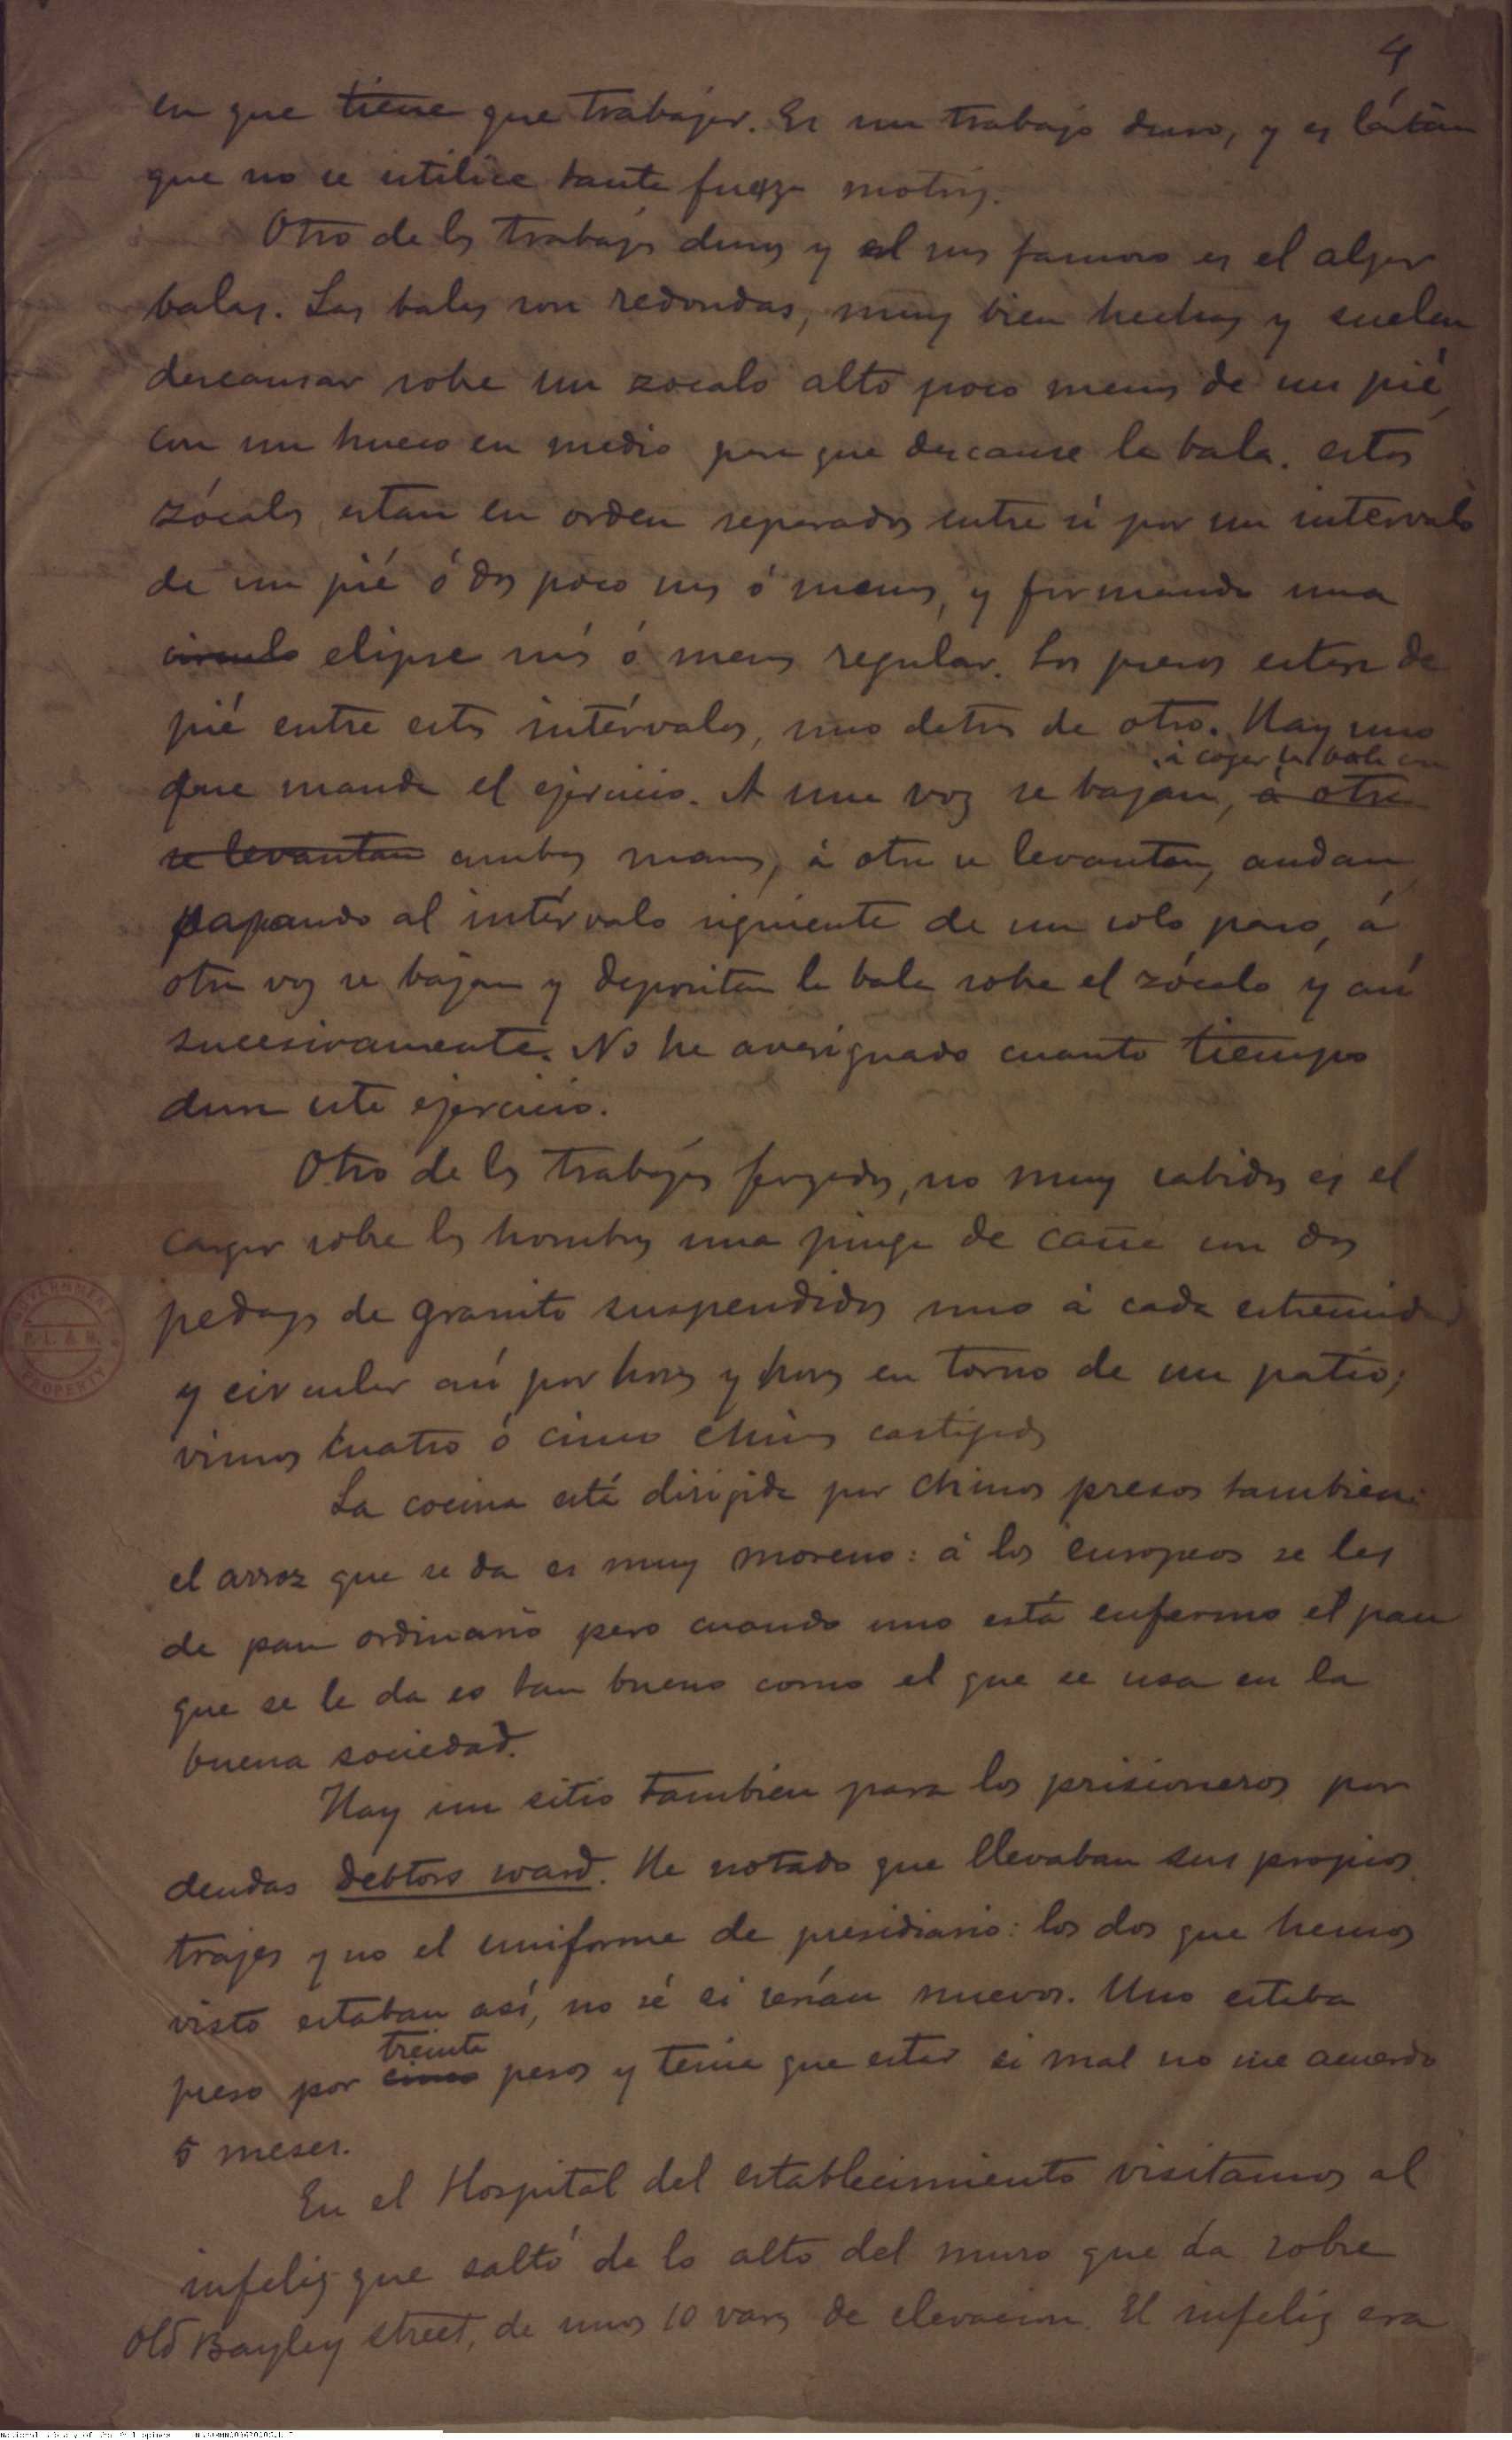 4
en que tiene que trabajar. Es un trabajo duro, y es lástima
que no se utilice tanta fuerza motriz.
Otro de los trabajos duros y el mas famoso es el alzar
balas. Las balas son redondas, muy bien hechas y suelen
descansar sobre un zocalo alto poco menos de un pié
con un hueco en medio para que descanse la bala. estos
zócalos estan en orden separados entre si por un intervalo
de un pié ó dos poco mas ó menos, y formando una
circulo elipse más ó menos regular. Los presos estan de
pié entre estos intérvalos, uno detras de otro. Hay uno
á coger la bala con
que manda el ejercicio. A una voz se bajan, á otra
se levantan ambas manos, á otra se levantan, andan
pasando al intérvalo siguiente de un solo paso, á
otra voz se bajan y depositan la bala sobre el zócalo y así
sucesivamente. No he averiguado cuanto tiempo
dura este ejercicio.
Otro de los trabajos forzados, no muy sabidos es el
cargar sobre los hombros una pinga de caña con dos
pedazos de granito suspendidos uno á cada estremidad
y circular así por horas y horas en torno de un patio;
vimos cuatro ó cinco chinos castigados
La cocina está dirigida por chinos presos tambien:
el arroz que se da es muy moreno: á los europeos se les
da pan ordinario pero cuando uno está enfermo el pan
que se le da es tan bueno como el que se usa en la
buena sociedad.
Hay un sitio tambien para los prisioneros por
deudas Debtors ward. He notado que llevaban sus propios
trajes y no el uniforme de presidiario: los dos que hemos
visto estaban así, no sé si serían nuevos. Uno estaba
treinta
preso por cinco pesos y tenia que estar si mal no me acuerdo
5 meses.
En el Hospital del establecimiento visitamos al
infeliz que saltó de lo alto del muro que da sobre
Old Bayley street, de unos 10 varas de elevacion. El infeliz era
GOVERNMENT
P.L.&M.
PROPERTY